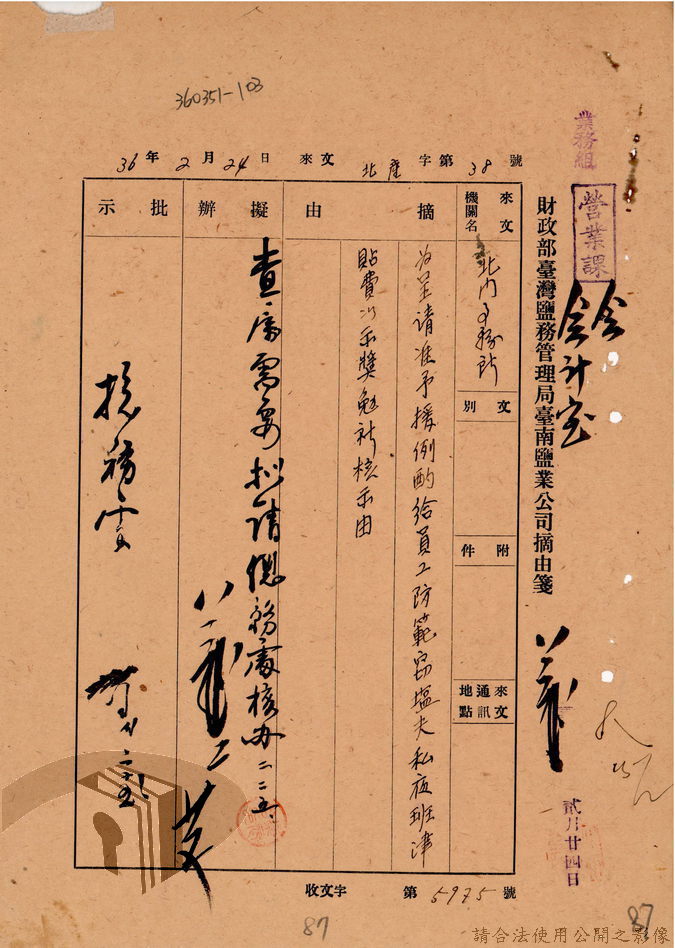 360351-103
業務組
營業課
會計室
財政部臺灣鹽務管理局臺南鹽業公司摘由箋
貳月廿四日
36年2月24日 來文 北產字第38號
來文機關名
北門事務所
文別
附件
來文通訊地點
摘由
為呈請准予援例酌給員工防範窃塩夫私夜班津
貼費以示獎勉祈核示由
擬辦
查屬需要拟請總務處核办 二二五
批示
收文 字第5975號
87
87
請合法使用公開之影像